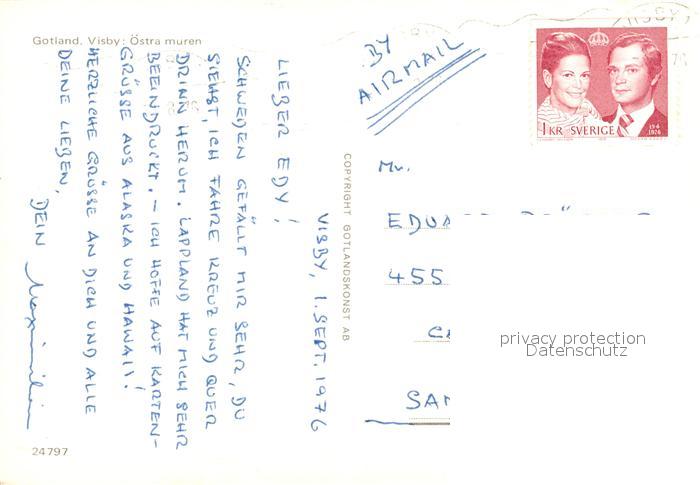 Gotland. Visby: Östra muren
VISBY, 1. SEPT. 1976
LIEBER EDY!
SCHWEDEN GEFÄLLT MIR SEHR, DU
SIEHST, ICH FAHRE KREUZ UND QUER
DRINN HERUM. LAPPLAND HAT MICH SEHR
BEEINDRUCKT. – ICH HOFFE AUF KARTEN-
GRÜSSE AUS ALASKA UND HAWAII!
HERZLICHE GRÜSSE AN DICH UND ALLE
DEINE LIEBEN,
DEIN Maximilian
24797
COPYRIGHT GOTLANDSKONST AB
BY
AIRMAIL
1 KR SVERIGE 19 6 1976
Mr.
EDUA
455
SAN
privacy protection
Datenschutz